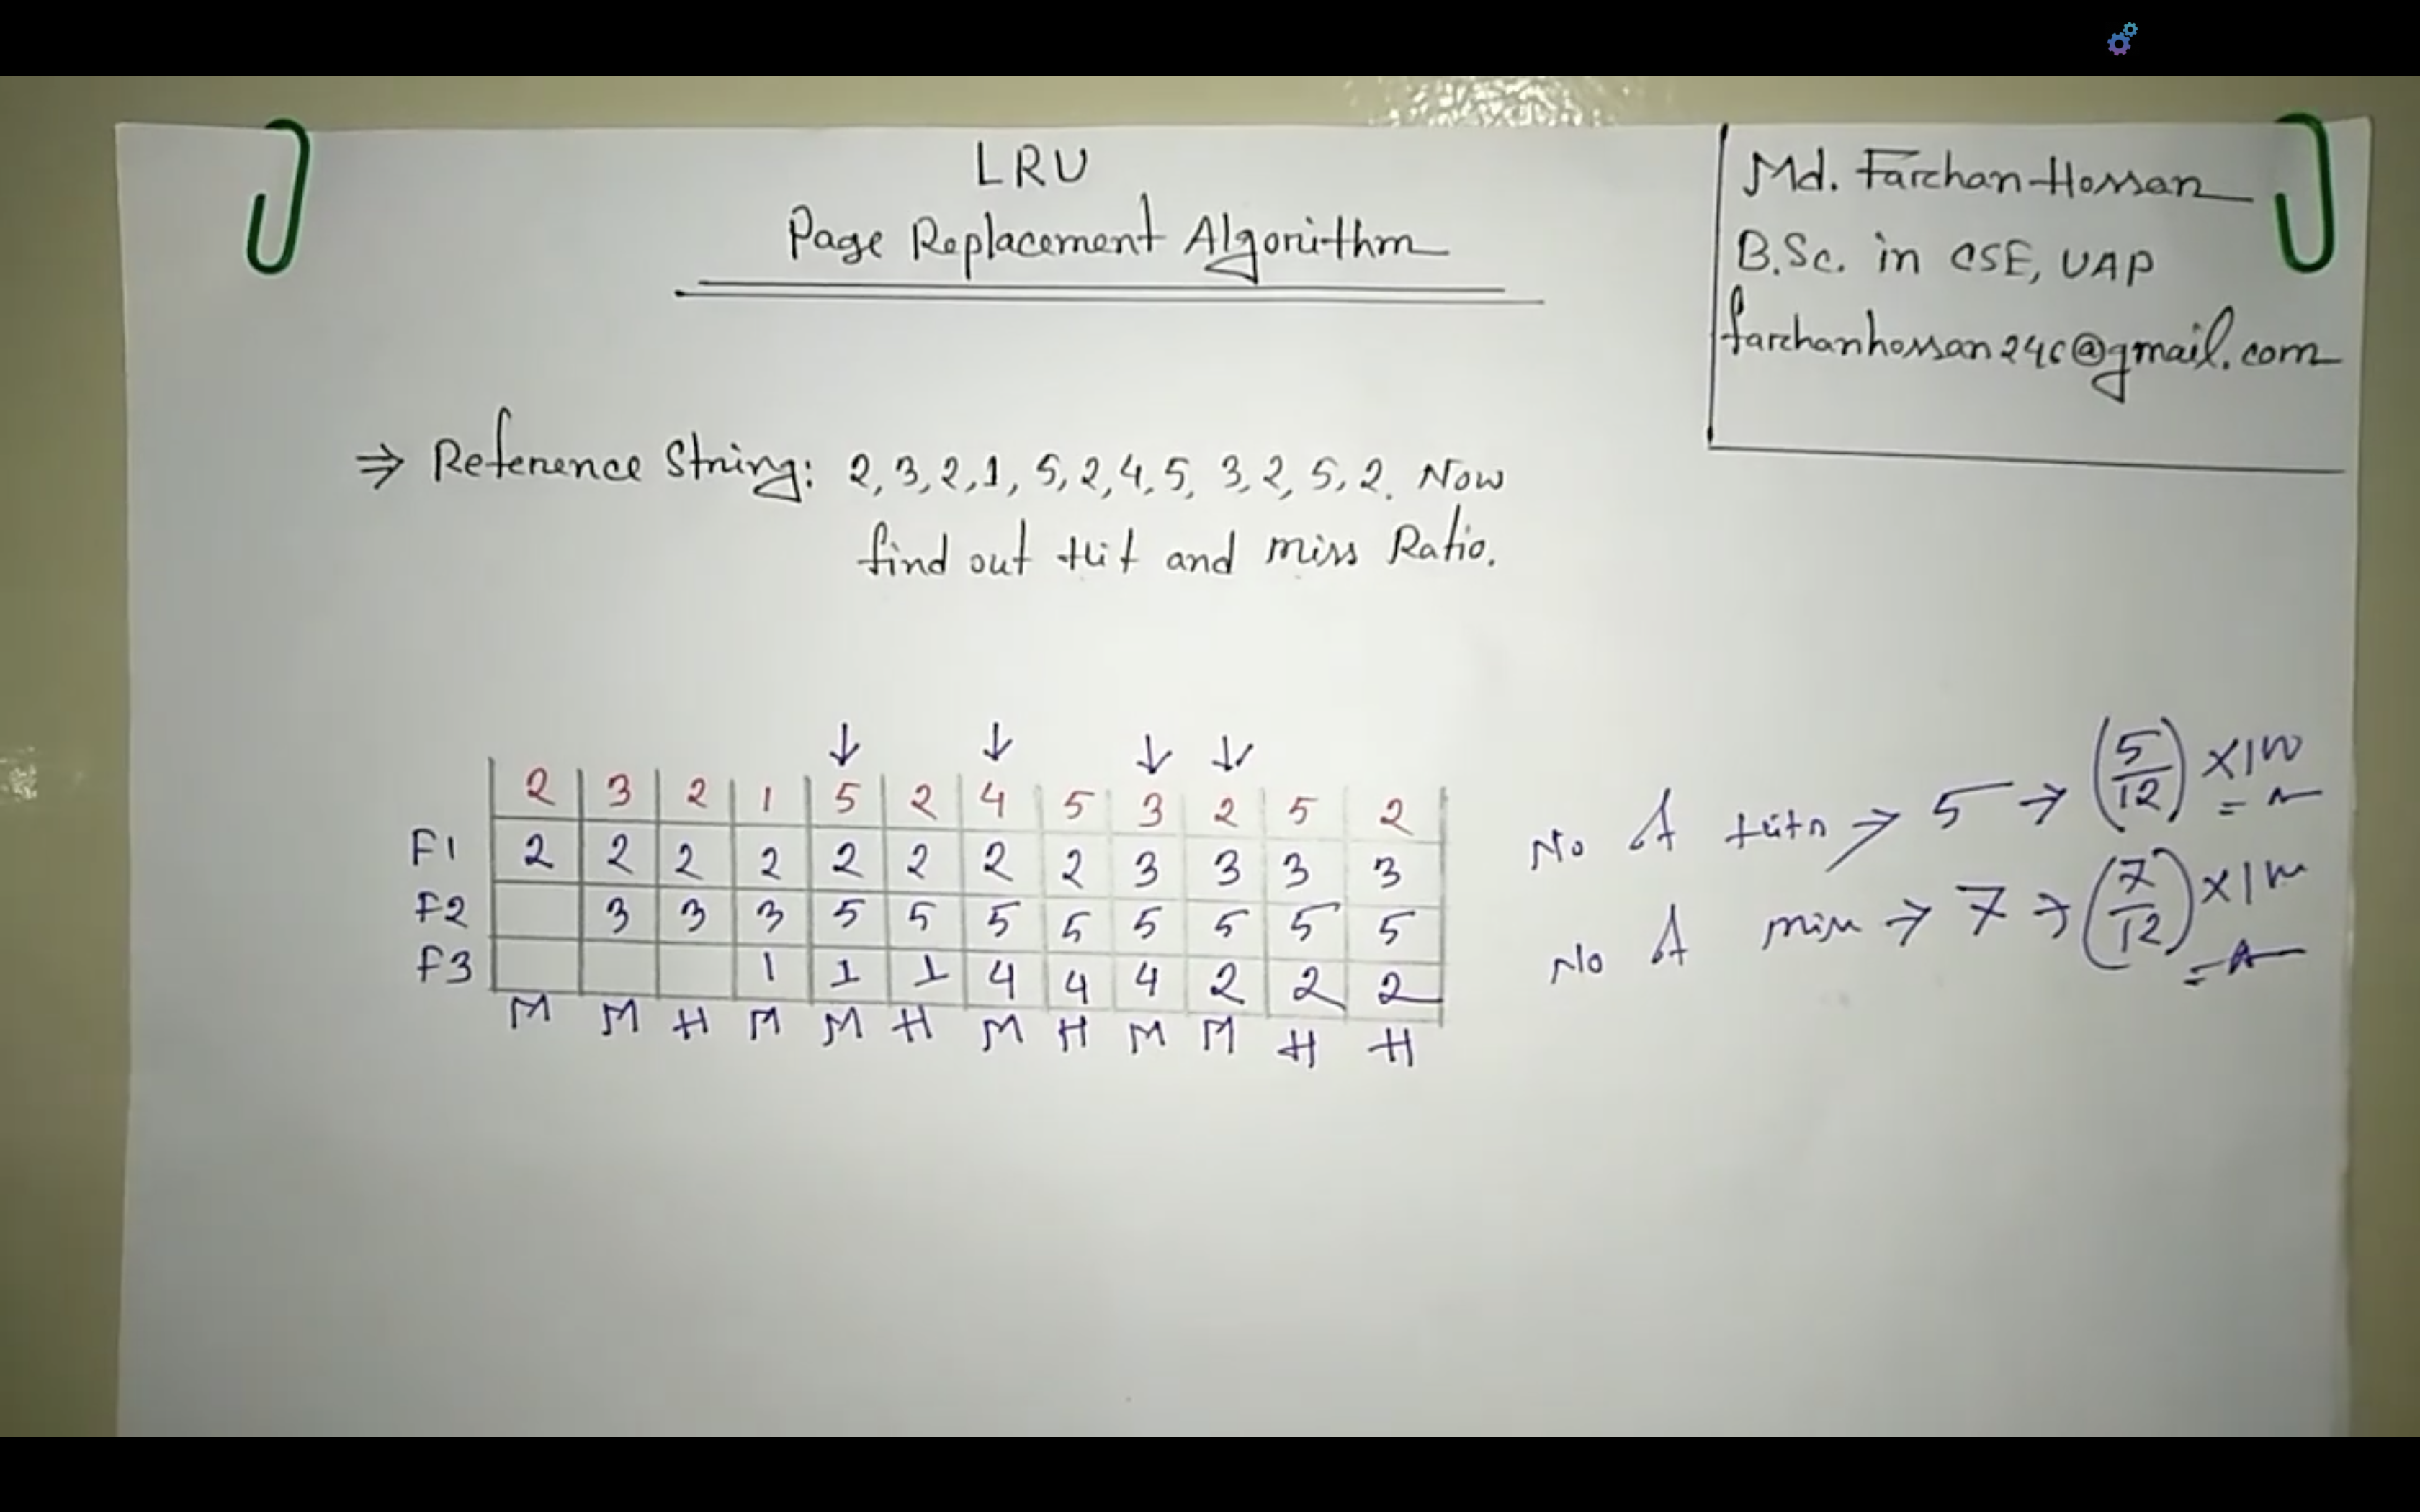 LRU
Page Replacement Algorithm
Md. Farhan Hossan
B.Sc. in CSE, UAP
farhanhossan24c@gmail.com
⇒ Reference String: 2, 3, 2, 1, 5, 2, 4, 5, 3, 2, 5, 2. Now
find out Hit and miss Ratio.
↓ ↓ ↓ ↓
2 3 2 1 5 2 4 5 3 2 5 2
F1 2 2 2 2 2 2 2 2 3 3 3 3
F2 3 3 3 5 5 5 5 5 5 5 5
F3 1 1 1 4 4 4 2 2 2
M M H M M H M H M M H H
No → 5 → (5/12) ×100 =
No miss → 7 → (7/12) ×100 =